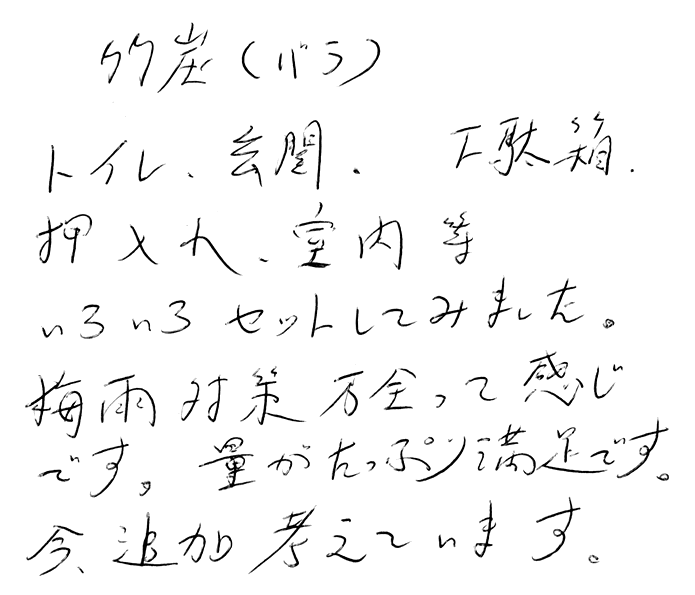 竹炭(バラ)
トイレ、玄関、下駄箱、
押入れ、室内等
いろいろセットしてみました。
梅雨対策万全って感じ
です。量がたっぷり満足です。
今、追加考えています。